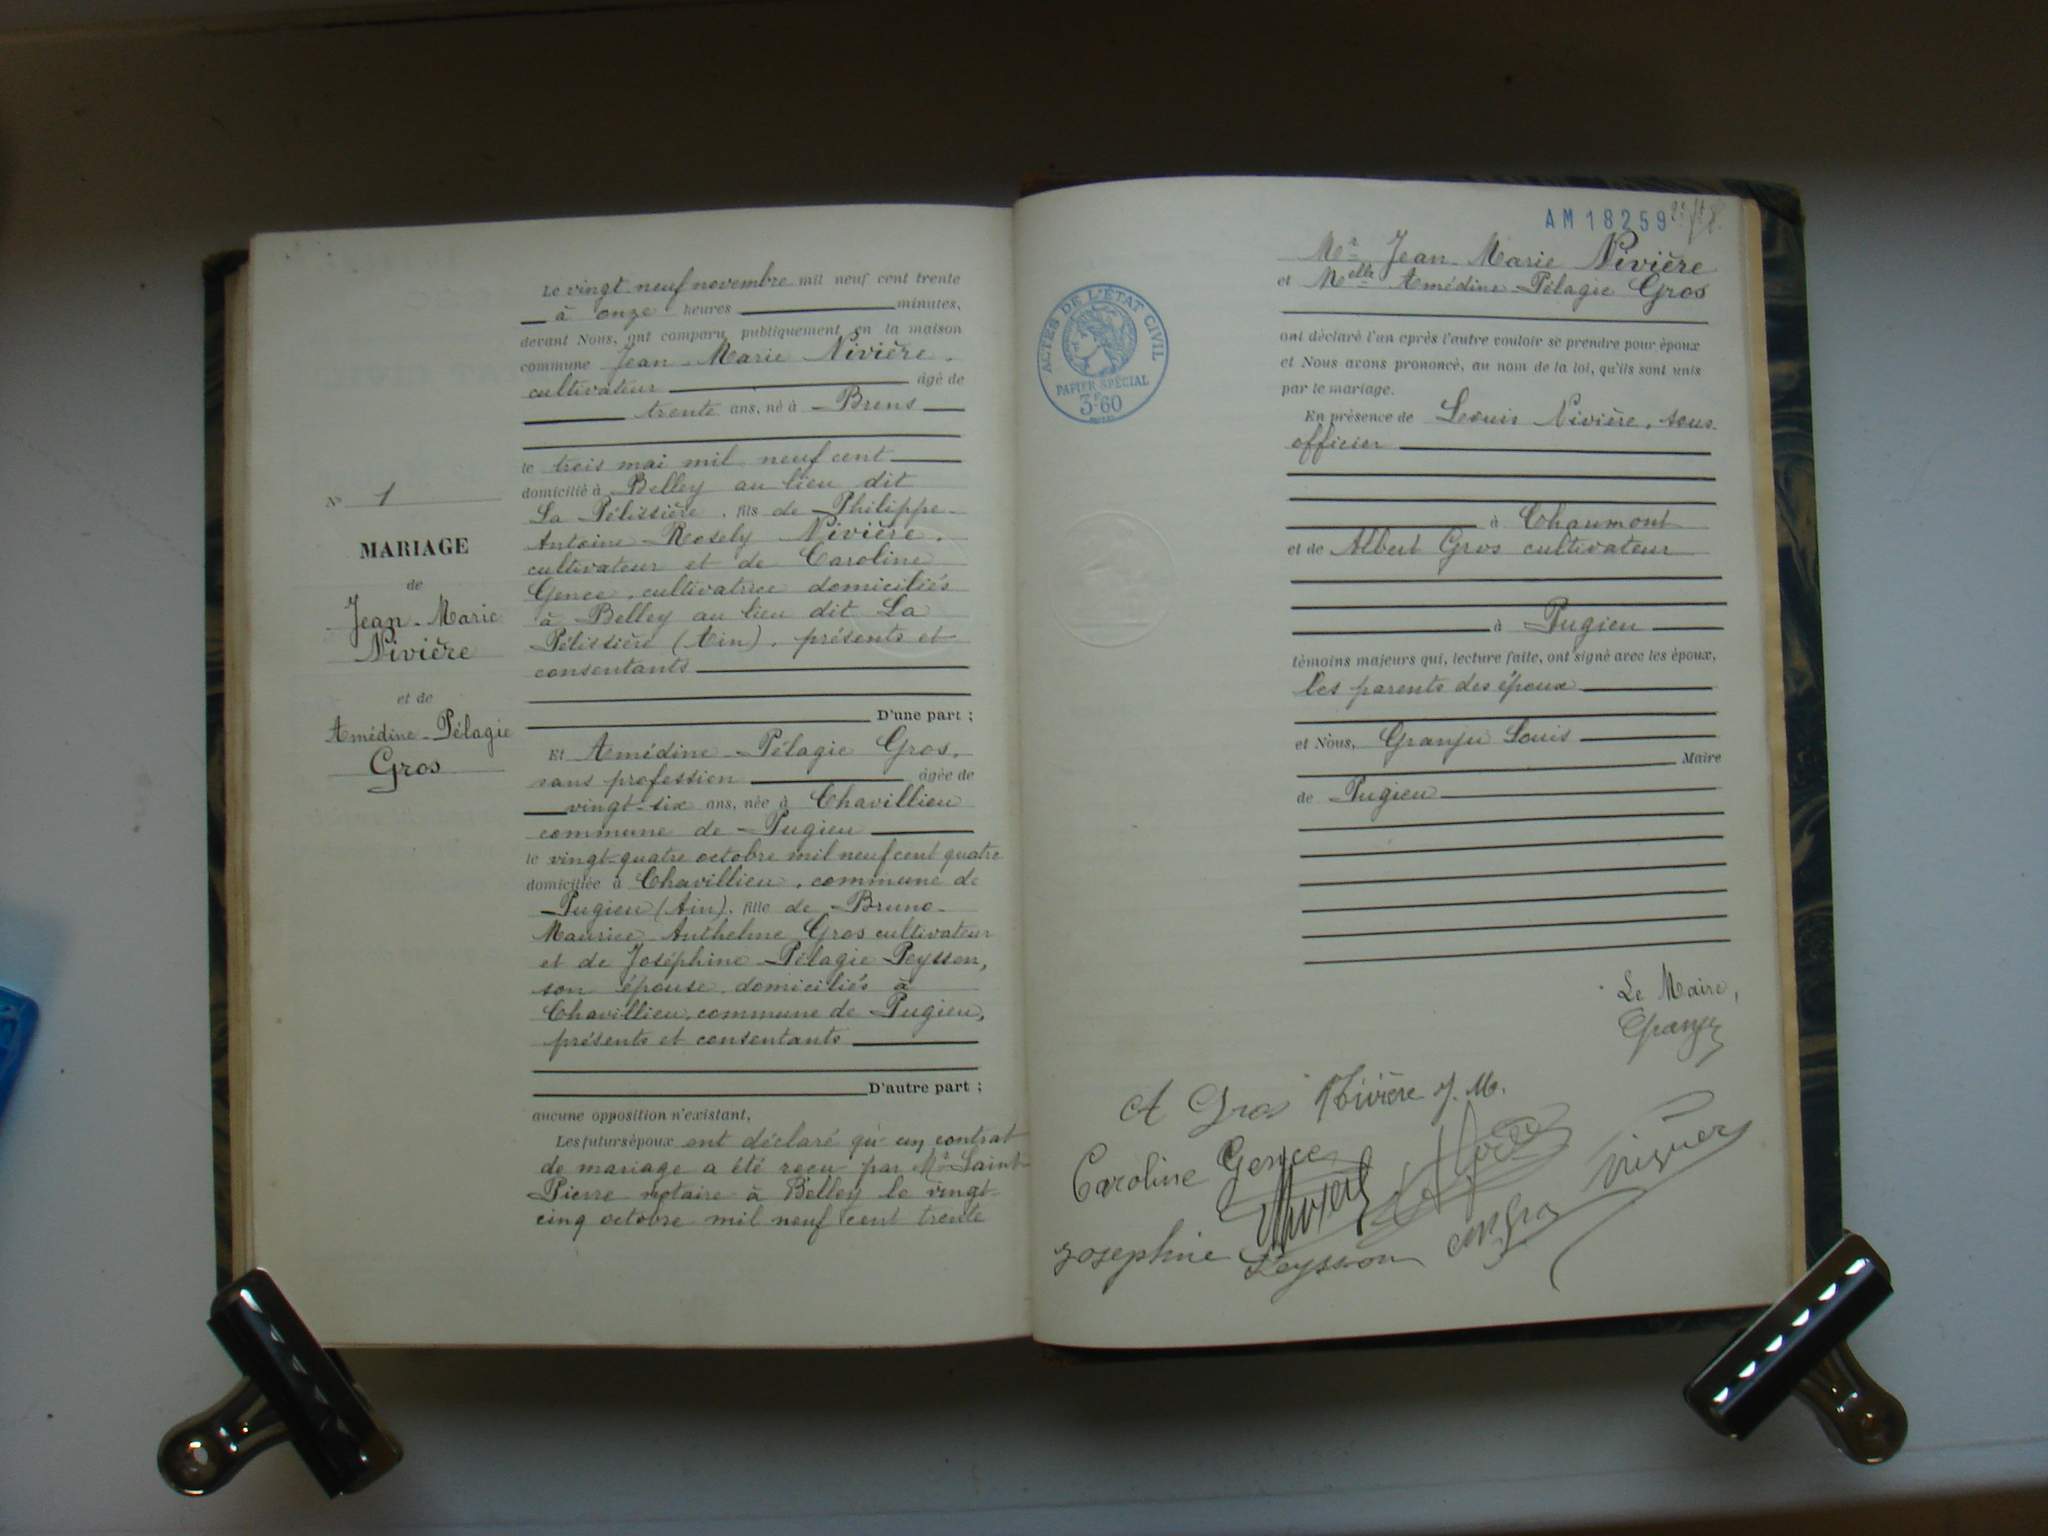 N° 1
MARIAGE
de
Jean-Marie
Nivière
et de
Amédine-Pélagie
Gros
Le vingt neuf novembre mil neuf cent trente
à onze heures minutes,
devant Nous, ont comparu publiquement en la maison
commune Jean-Marie Nivière,
cultivateur âgé de
trente ans, né à Brens
le trois mai mil neuf cent
domicilié à Belley au lieu dit
La Pélissière, fils de Philippe-
Antoine-Rosely Nivière,
cultivateur et de Caroline
Gence, cultivatrice domiciliés
à Belley au lieu dit La
Pélissière (Ain), présents et
consentants
D'une part ;
Et Amédine-Pélagie Gros,
sans profession âgée de
vingt-six ans, née à Chavillieu
commune de Pugieu
le vingt-quatre octobre mil neuf cent quatre
domiciliée à Chavillieu, commune de
Pugieu (Ain), fille de Bruno-
Maurice-Anthelme Gros cultivateur
et de Joséphine-Pélagie Peysson,
son épouse domiciliés à
Chavillieu, commune de Pugieu,
présents et consentants
D'autre part ;
aucune opposition n'existant,
Les futurs époux ont déclaré qu'un contrat
de mariage a été reçu par Me Saint-
Pierre notaire à Belley le vingt-
cinq octobre mil neuf cent trente
AM 18259
ACTES DE L'ÉTAT CIVIL
PAPIER SPÉCIAL
3F60
Mr Jean-Marie Nivière
et Melle Amédine-Pélagie Gros
ont déclaré l'un après l'autre vouloir se prendre pour époux
et Nous avons prononcé, au nom de la loi, qu'ils sont unis
par le mariage.
En présence de Louis Nivière, sous-
officier
à Chaumont
et de Albert Gros cultivateur
à Pugieu
témoins majeurs qui, lecture faite, ont signé avec les époux,
les parents des époux
et Nous, Granju Louis
Maire
de Pugieu
Le Maire,
Granju
A Gros Nivière J. M.
Caroline Gence
Josephine Peysson